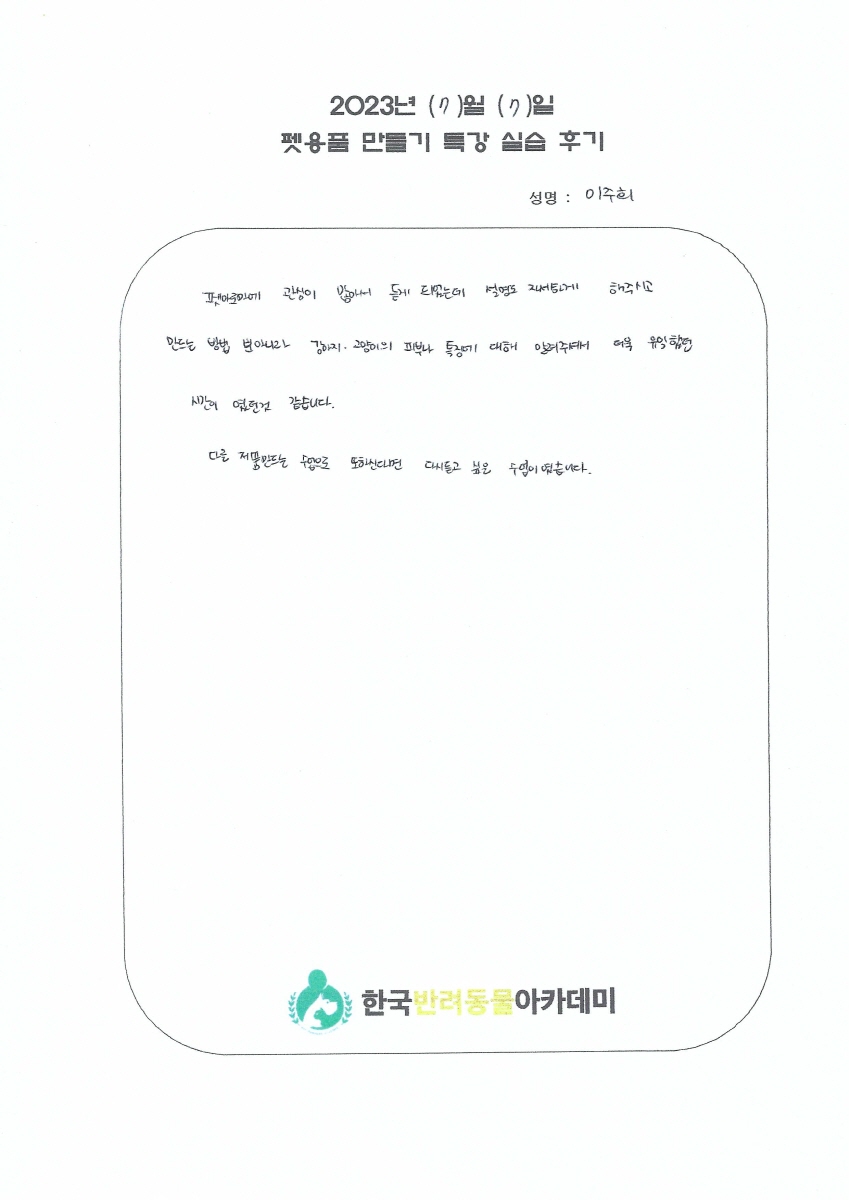 2023년 (7)월 (7)일
펫용품 만들기 특강 실습 후기
성명 : 이주희
펫아로마에 관심이 많아서 듣게 되었는데 설명도 자세하게 해주시고
만드는 방법 뿐아니라 강아지·고양이의 피부나 특징에 대해 알려주셔서 더욱 유익했던
시간이 였던것 같습니다.
다른 제품만드는 수업으로 또하신다면 다시듣고 싶은 수업이였습니다.
한국반려동물아카데미